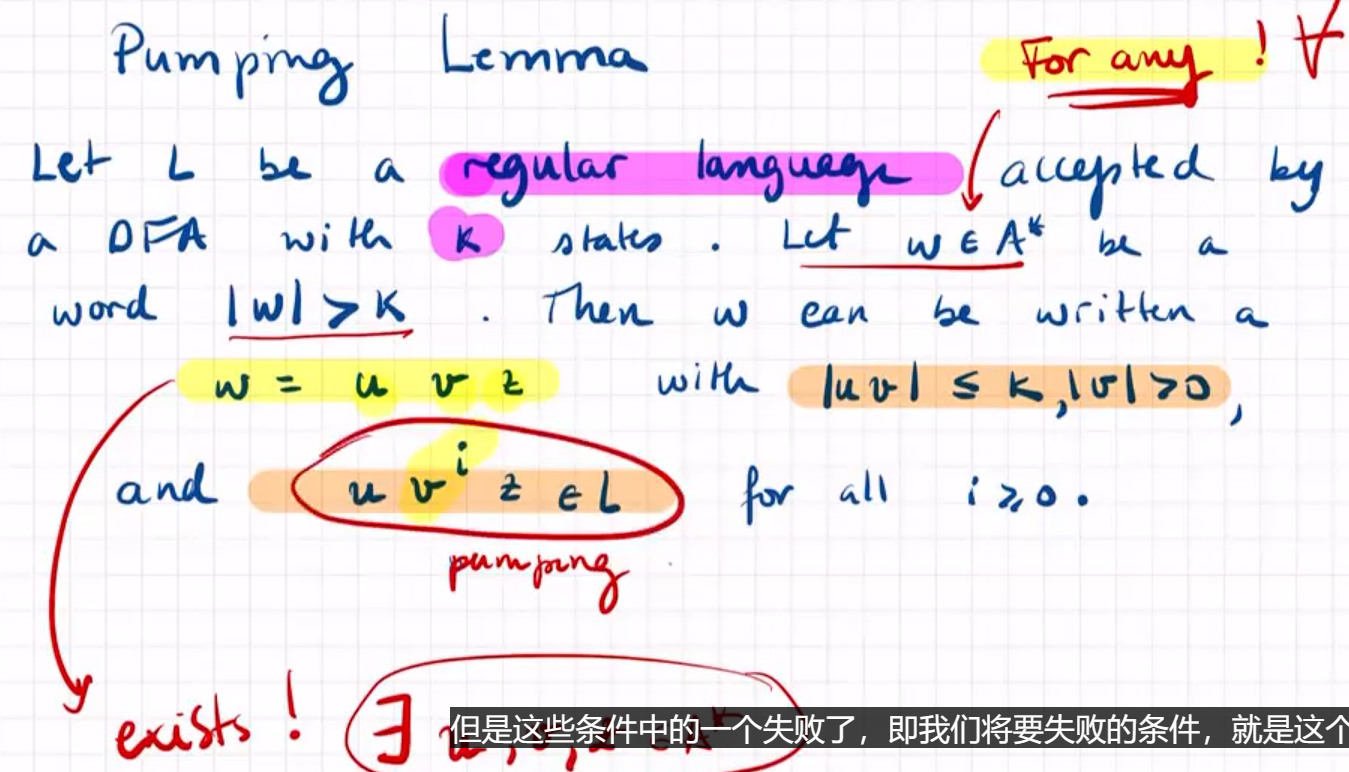 Pumping Lemma
For any ! ∀
Let L be a regular language accepted by
a DFA with k states . Let w ∈ A* be a
word |w| > k . Then w can be written a
w = u v z with |uv| ≤ k, |v| > 0,
and u vⁱ z ∈ L for all i ≥ 0 .
pumping
exists ! ∃
但是这些条件中的一个失败了，即我们将要失败的条件，就是这个